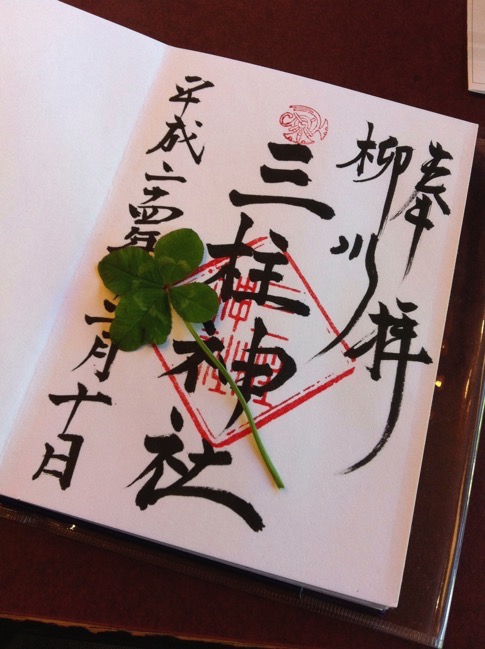 奉拝
柳川
三柱神社
平成二十四年 月十日